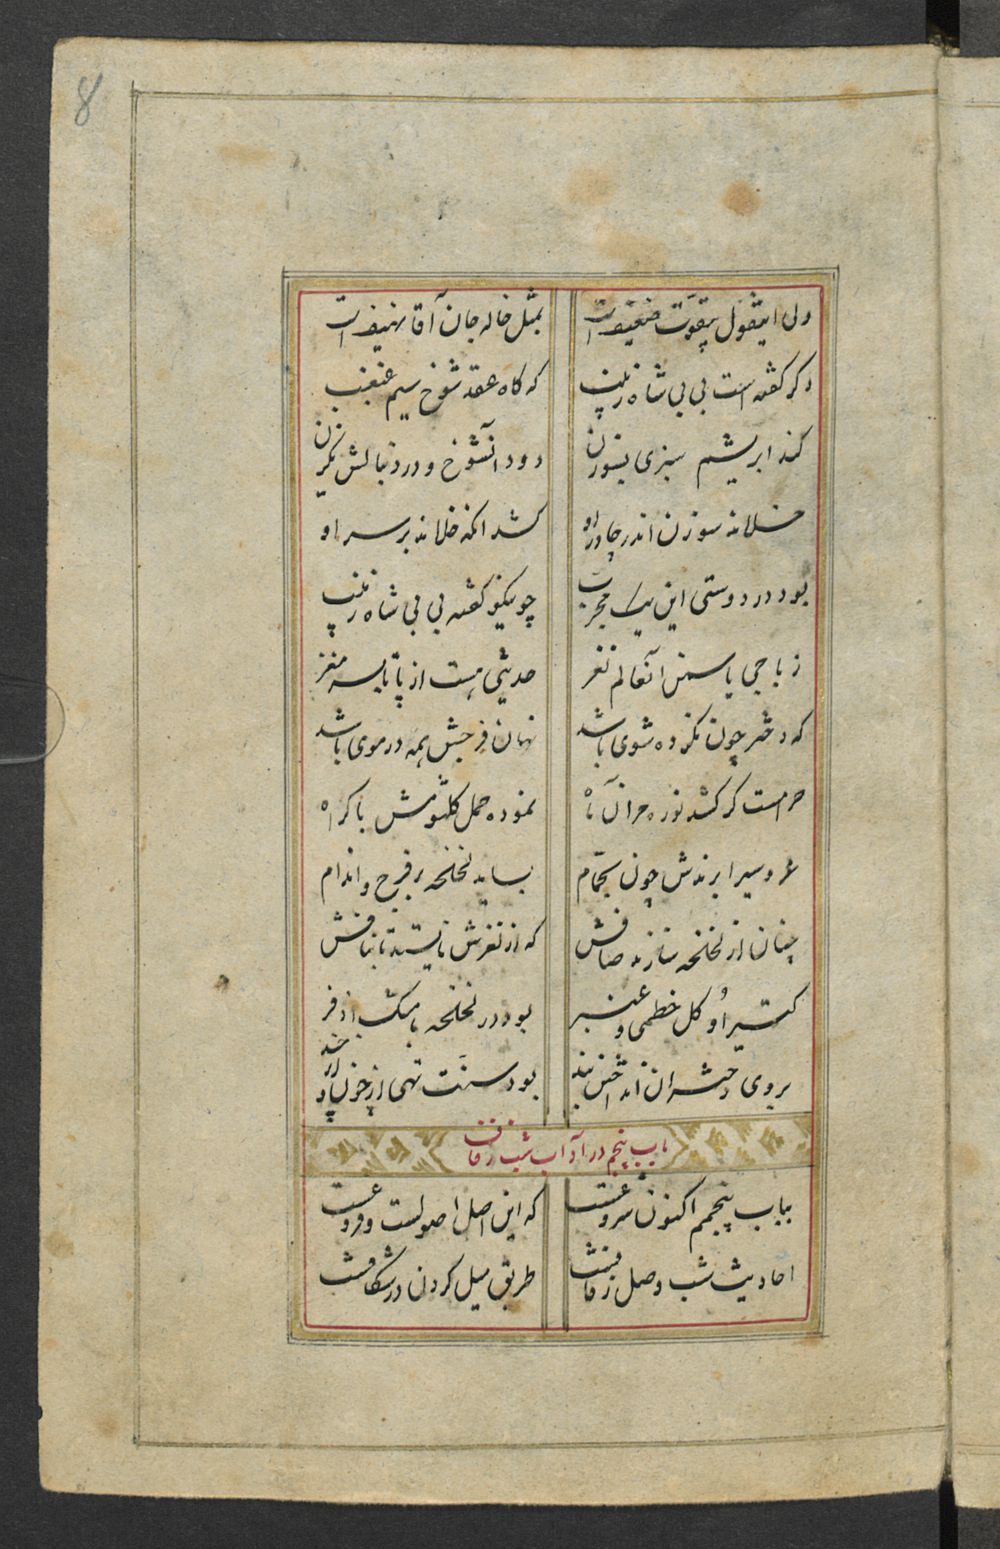 8
ولی اینقول بیقوت ضعیف است بمثل خاله جان آقا نهیف است
دکر کفته است بی بی شاه زینب که کاه عقد شوخ سیم غبغب
کند ابریشم سبزی بسوزن دود آنشوخ و در دنبالش نکرزن
خلاند سوزن اندر چادر او کشد انکه خلاند بر سر او
بود در دوستی این یک مجرب چو نیکو کفته بی بی شاه زینب
ز باجی یاسمن آنعالم نغز حدیثی هست از پا تا بسر مغز
که دختر چون نکرده شوی باشد نهان فرجش همه در موی باشد
حرامست کر کشد نوره حرا آن ماه نموده حمل کلثومش باکراه
عروسیرا برندش چون بحمام بساید لخلخه بر فرج و اندام
چنان از لخلخه سازند صافش که از نغزش نایستد تا بنافش
کتیرا و کل خطمی و عنبر بود در لخلخه با مشک اذفر
بروی دختران انداختن بند بود سنت تهی از چون و از چند
باب پنجم در آداب شب زفاف
بباب پنجمم اکنون شروعست که این اصل اصولست و فروعست
احادیث شب وصل زفافست طریق میل کردن در شکافست